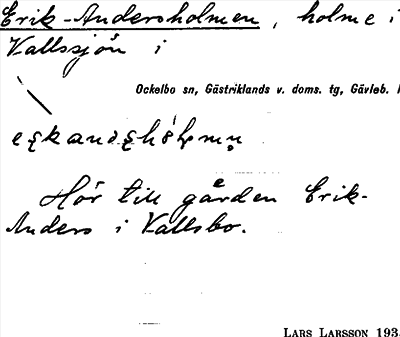 Erik-Andersholmen, holme i
Vallssjön i
Ockelbo sn, Gästriklands v. doms. tg, Gävleb. l
Hör till gården Erik-
Anders i Vallsbo.
LARS LARSSON 193